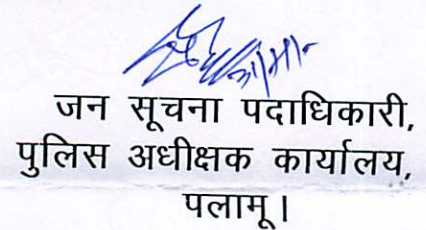 जन सूचना पदाधिकारी,
पुलिस अधीक्षक कार्यालय,
पलामू।